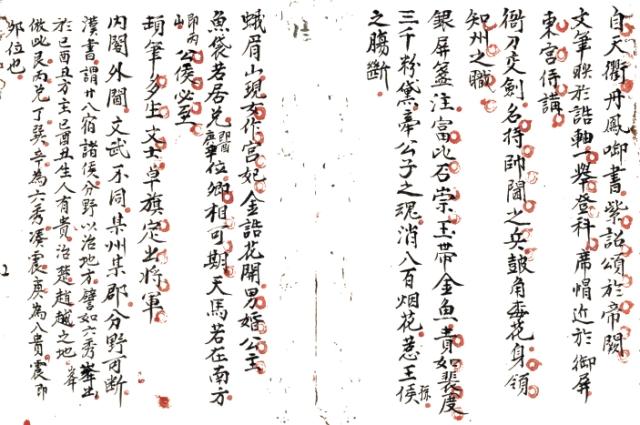 自天衢丹鳳啣書紫詔頒於帝闕
文筆聯於誥軸一舉登科席帽近於御屏
東宮侍講
衙刀交劍名持帥閫之兵鼓角梅花身領
知州之職
銀屏盞注富比石崇玉帶金魚貴如裴度
三千粉黛牽公子之魂消八百烟花惹王侯孫
之腸斷
蛾眉山現女作宮妃金誥花開男婚公主
魚袋若居兌位卿相可期天馬若在南方
即丙山公侯必至
頓筆多生文士卓旗定出將軍
內閣外閫文武不同某州某郡分野可斷
漢書謂廿八宿諸侯分野以治地方譬如六秀峯出
於巳酉丑方主巳酉丑生人有貴治楚趙越之地
倣此艮丙兌丁巽辛為六秀添震庚為八貴震即
卯位也